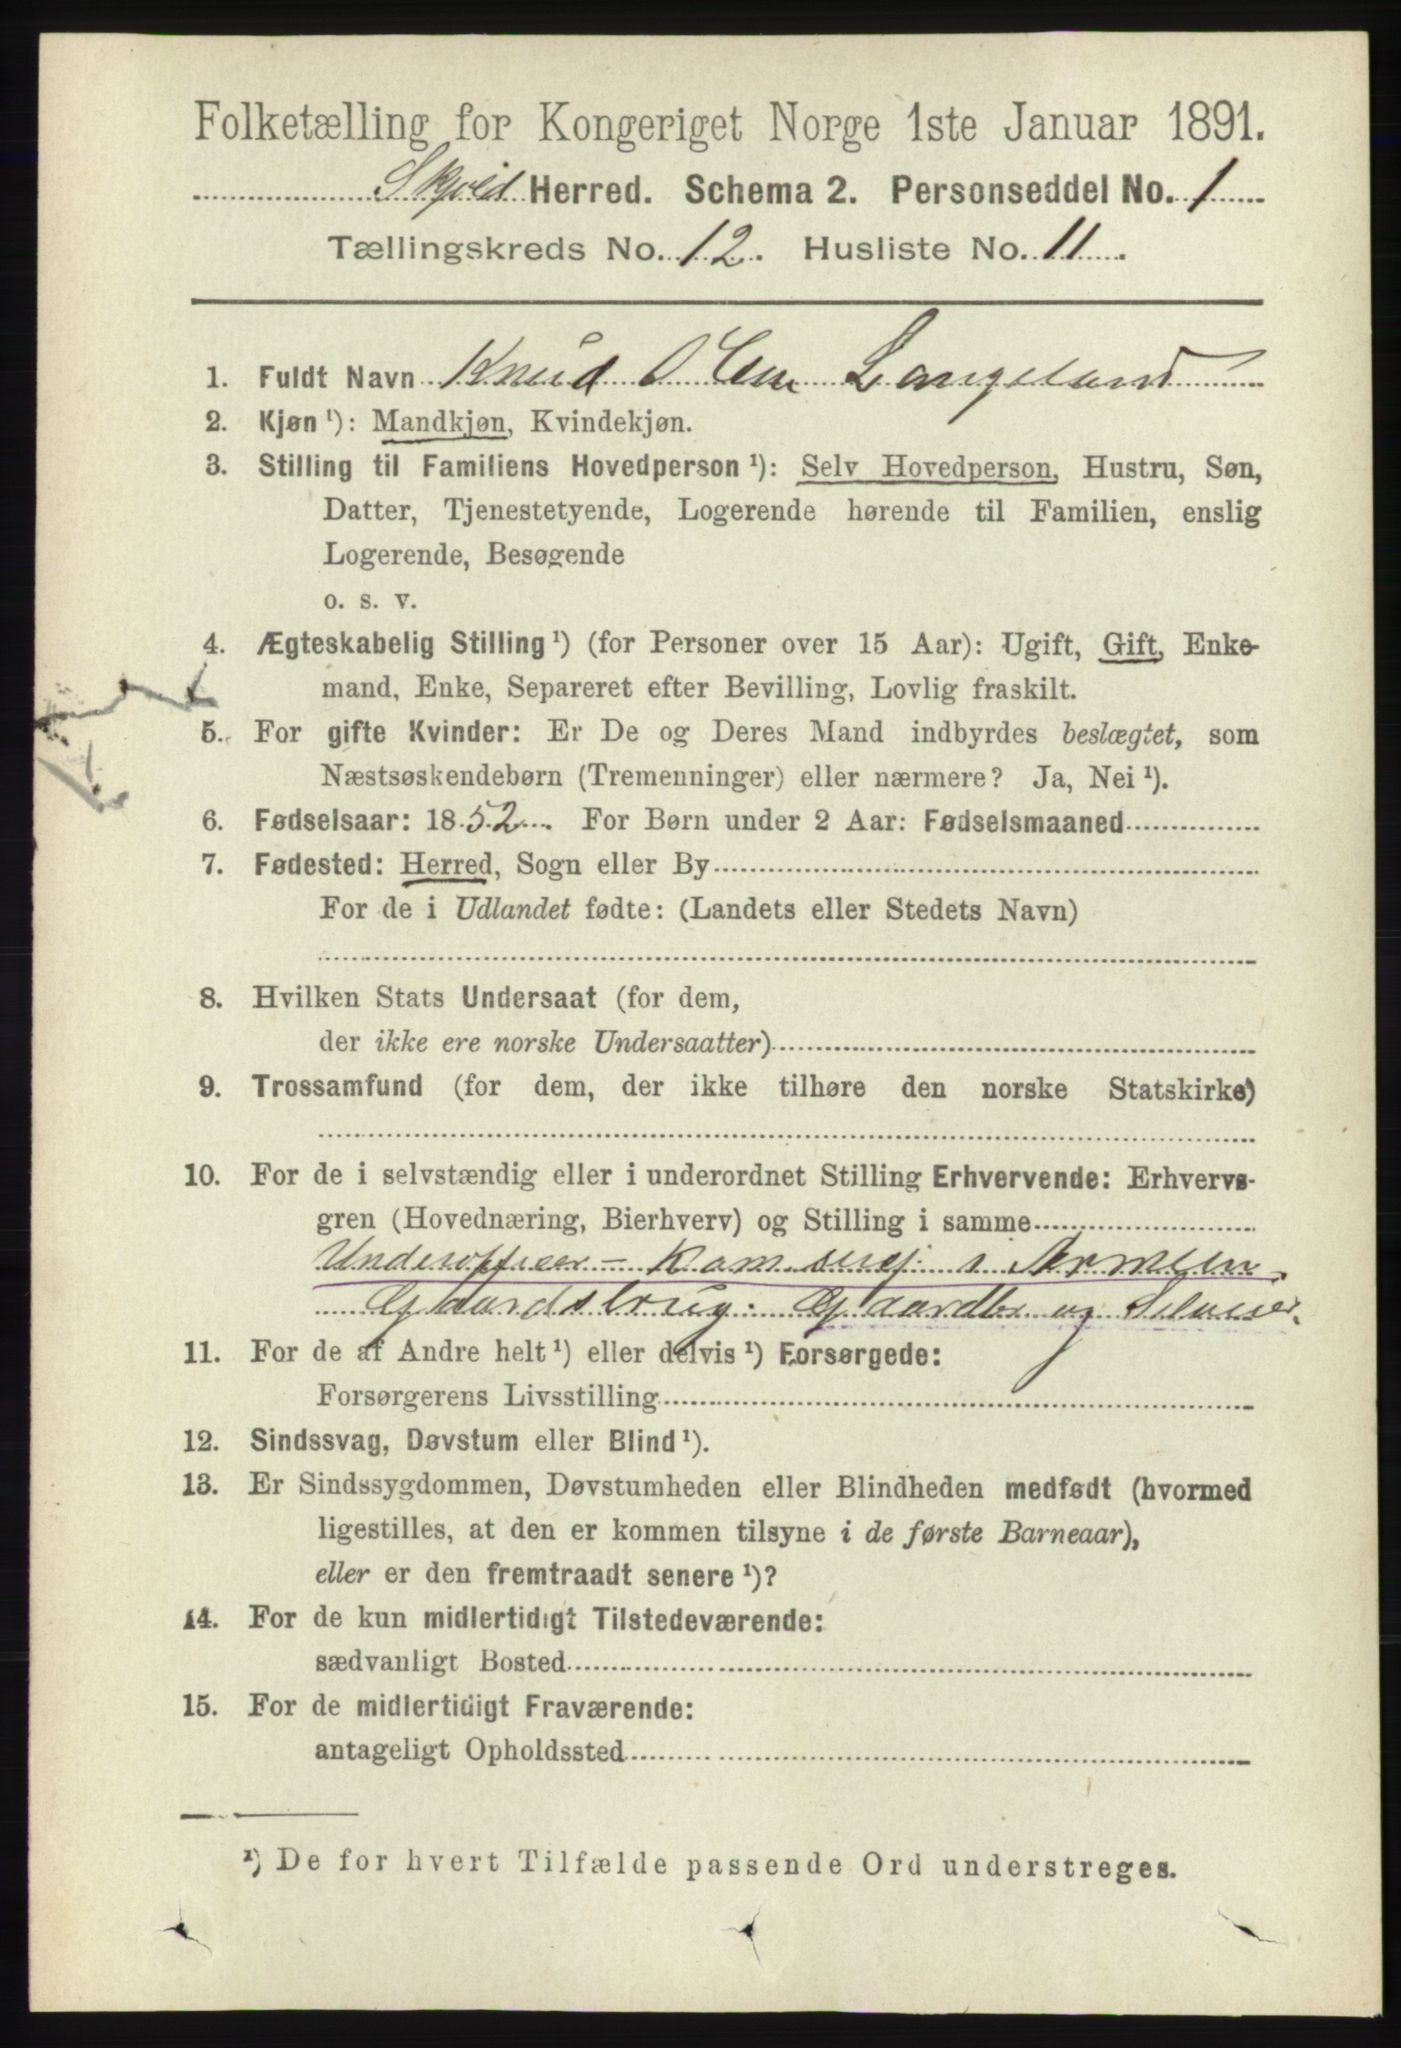 Folketælling for Kongeriget Norge 1ste Januar 1891.
Skjold Herred. Schema 2. Personseddel No. 1
Tællingskreds No. 12. Husliste No. 11.
1. Fuldt Navn Knud Olsen Langeland
2. Kjøn ¹): Mandkjøn, Kvindekjøn.
3. Stilling til Familiens Hovedperson ¹): Selv Hovedperson, Hustru, Søn,
Datter, Tjenestetyende, Logerende hørende til Familien, enslig
Logerende, Besøgende
o. s. v.
4. Ægteskabelig Stilling ¹) (for Personer over 15 Aar): Ugift, Gift, Enke-
mand, Enke, Separeret efter Bevilling, Lovlig fraskilt.
5. For gifte Kvinder: Er De og Deres Mand indbyrdes beslægtet, som
Næstsøskendebørn (Tremenninger) eller nærmere? Ja, Nei ¹).
6. Fødselsaar: 1852. For Børn under 2 Aar: Fødselsmaaned
7. Fødested: Herred, Sogn eller By
For de i Udlandet fødte: (Landets eller Stedets Navn)
8. Hvilken Stats Undersaat (for dem,
der ikke ere norske Undersaatter)
9. Trossamfund (for dem, der ikke tilhøre den norske Statskirke)
10. For de i selvstændig eller i underordnet Stilling Erhvervende: Erhvervs-
gren (Hovednæring, Bierhverv) og Stilling i samme
Underofficer – i Armeen.
Gaardsbrug: Gaardbr og Seleier.
11. For de af Andre helt ¹) eller delvis ¹) Forsørgede:
Forsørgerens Livsstilling
12. Sindssvag, Døvstum eller Blind ¹).
13. Er Sindssygdommen, Døvstumheden eller Blindheden medfødt (hvormed
ligestilles, at den er kommen tilsyne i de første Barneaar),
eller er den fremtraadt senere ¹)?
14. For de kun midlertidigt Tilstedeværende:
sædvanligt Bosted
15. For de midlertidigt Fraværende:
antageligt Opholdssted
¹) De for hvert Tilfælde passende Ord understreges.